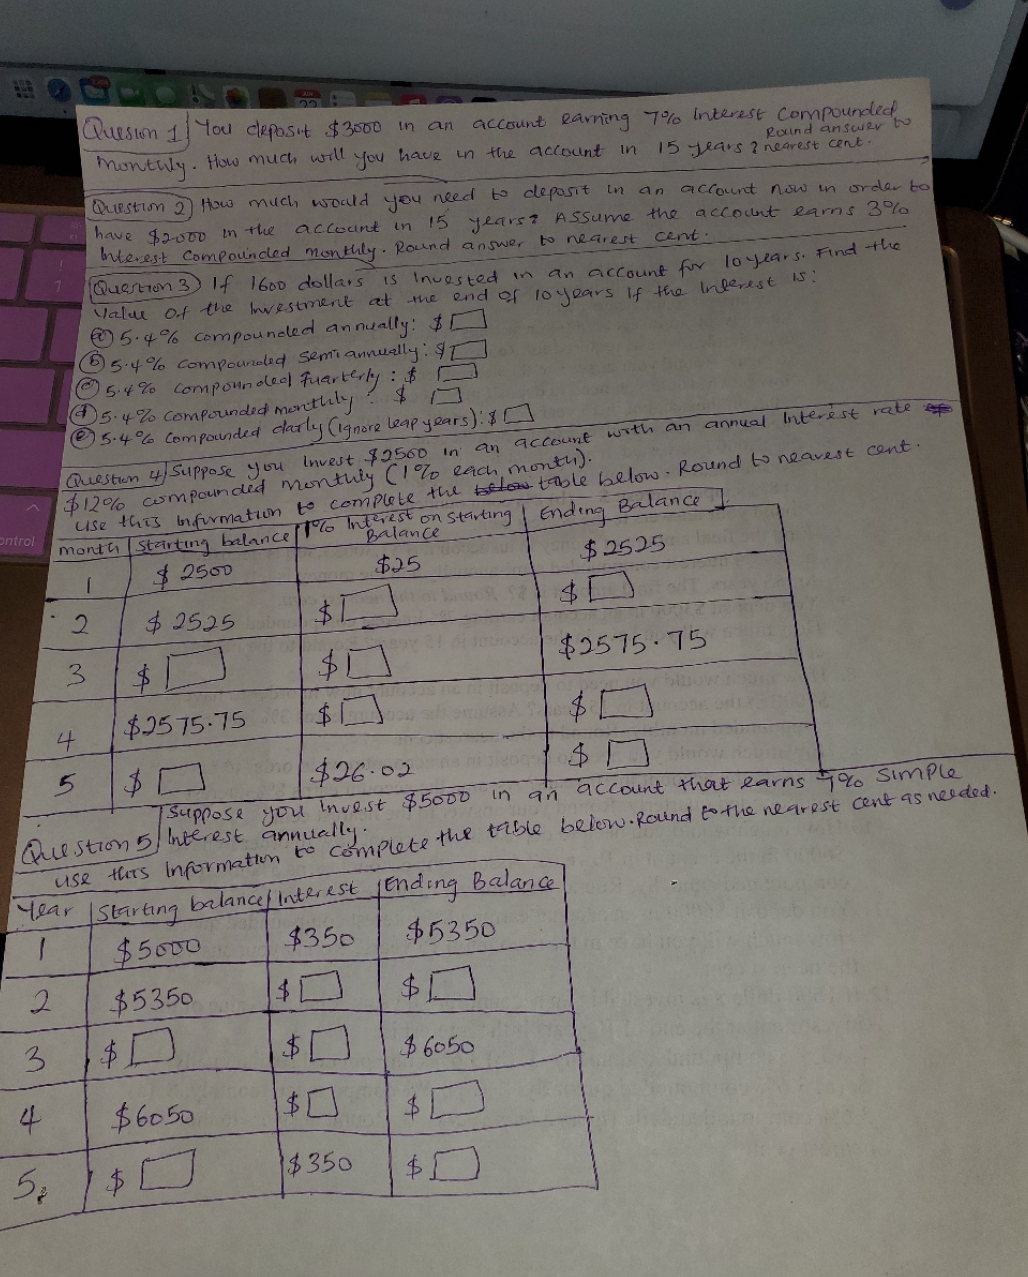 Question 1 You deposit $3000 in an account earning 7% Interest compounded
monthly. How much will you have in the account in 15 years? Round answer to nearest cent.
Question 2 How much would you need to deposit in an account now in order to
have $2000 in the account in 15 years? Assume the account earns 3%
Interest compounded monthly. Round answer to nearest cent.
Question 3 If 1600 dollars is Invested in an account for 10 years. Find the
value of the Investment at the end of 10 years if the Interest is:
a 5.4% compounded annually: $
b 5.4% compounded semiannually: $
c 5.4% compounded quarterly: $
d 5.4% compounded monthly: $
e 5.4% compounded daily (ignore leap years): $
Question 4 Suppose you Invest $2500 in an account with an annual Interest rate of
$12% compounded monthly (1% each month).
use this Information to complete the below table below. Round to nearest cent.
month Starting balance 1% Interest on Starting Balance Ending Balance
1 $2500 $25 $2525
2 $2525 $ $
3 $ $ $2575.75
4 $2575.75 $ $
5 $ $26.02 $
Question 5 Suppose you Invest $5000 in an account that earns 7% Simple
Interest annually.
use this Information to complete the table below. Round to the nearest cent as needed.
Year Starting balance Interest Ending Balance
1 $5000 $350 $5350
2 $5350 $ $
3 $ $ $6050
4 $6050 $ $
5. $ $350 $